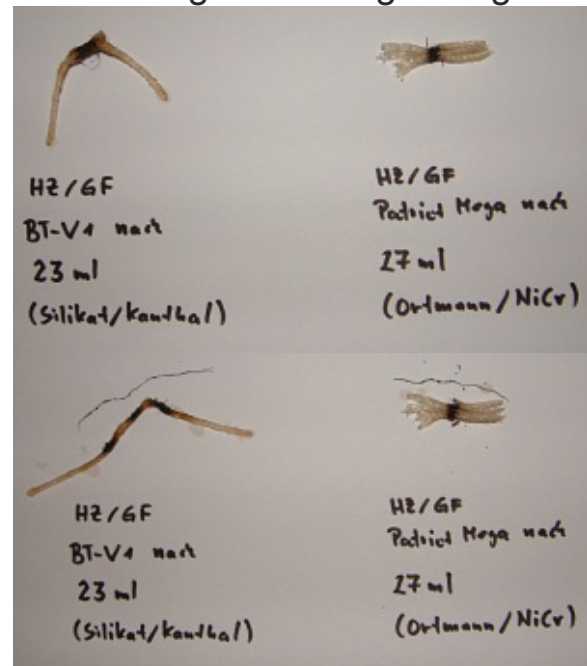 HZ/GF
BT-V1 nach
23 ml
(Silikat/Kanthal)
HZ/GF
Patrict Mega nach
27 ml
(Ortmann/NiCr)
HZ/GF
BT-V1 nach
23 ml
(Silikat/Kanthal)
HZ/GF
Patrict Mega nach
27 ml
(Ortmann/NiCr)